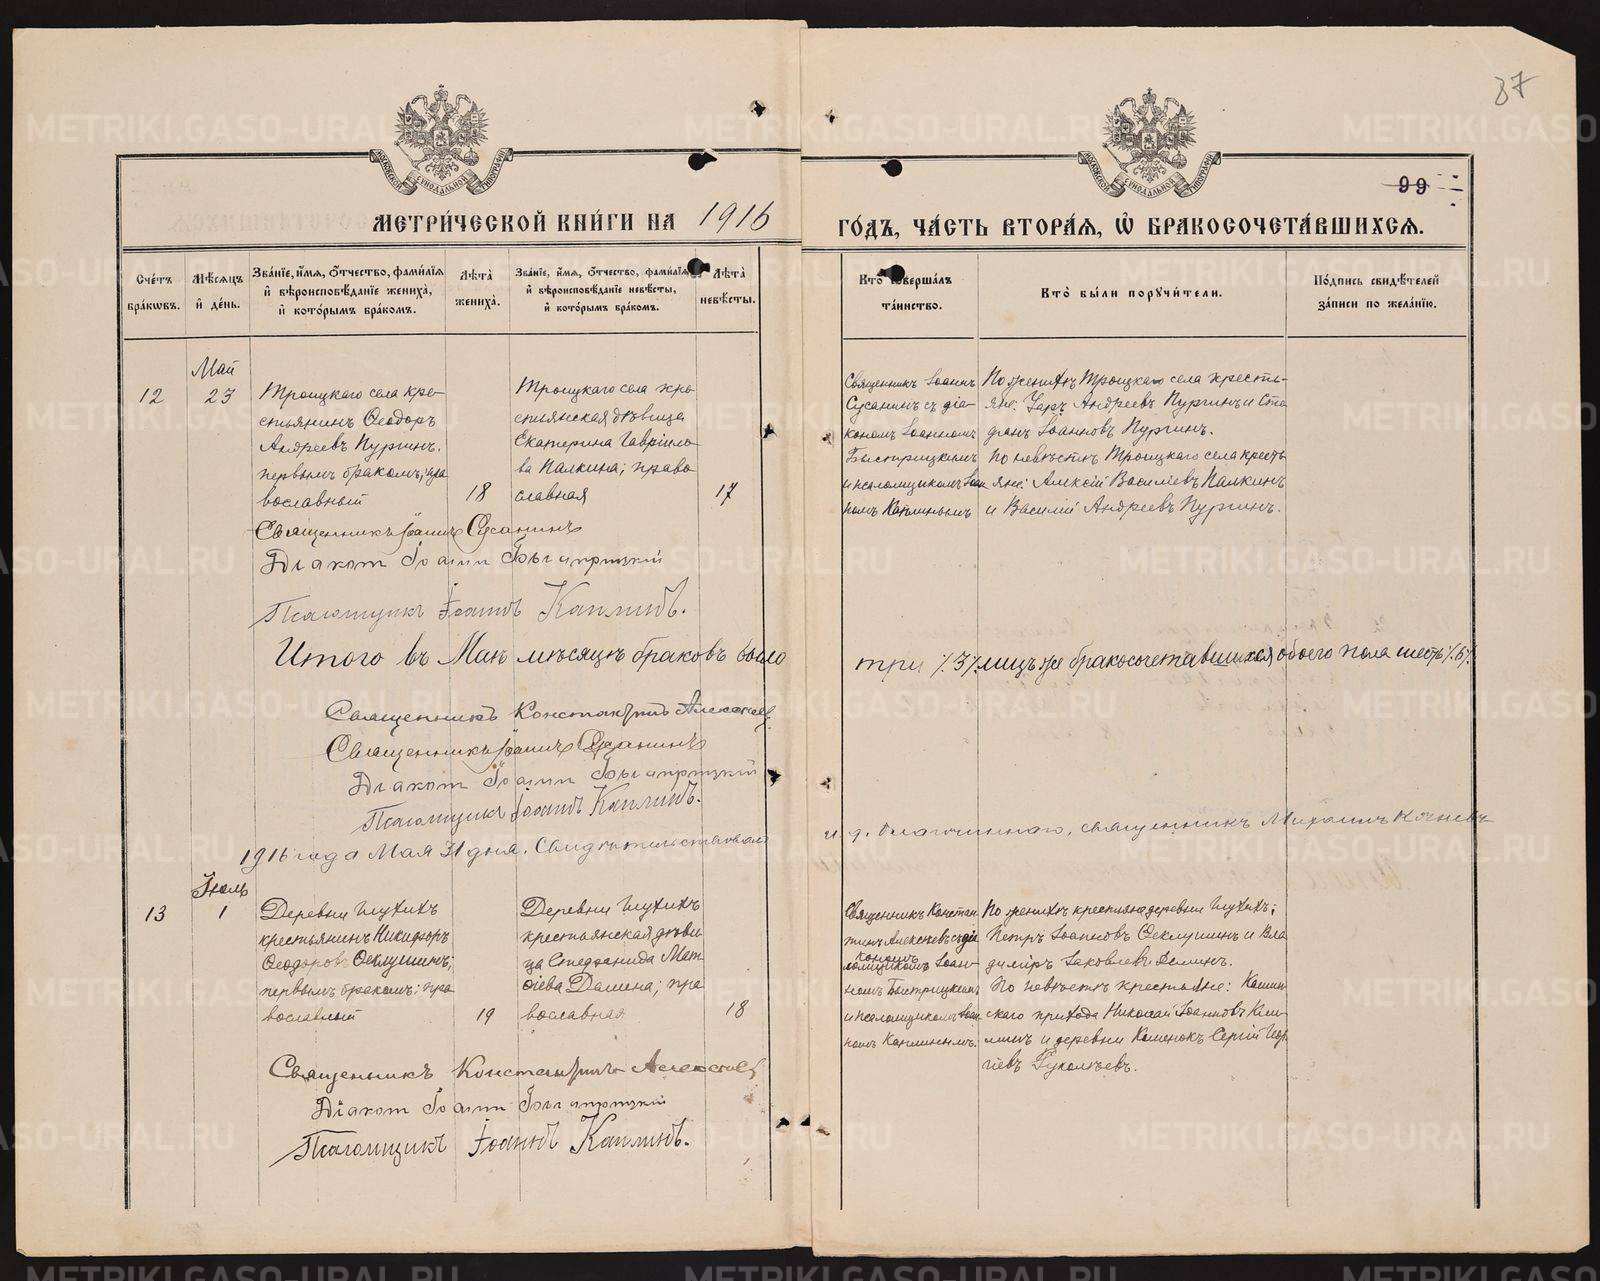 87
99
МОСКОВСКОЙ СѴНОДАЛЬНОЙ ТИПОГРАФІИ
МОСКОВСКОЙ СѴНОДАЛЬНОЙ ТИПОГРАФІИ
МЕТРИ́ЧЕСКОЙ КНИ́ГИ НА 1916 ГО́ДЪ, ЧА́СТЬ ВТОРА́Я, Ѡ҆ БРАКОСОЧЕТА́ВШИХСЯ.
Сче́тъ бра́кѡвъ.
Мѣ́сяцъ и҆ де́нь.
Зва́нїе, и҆́мя, ѻ҆́тчество, фами́лїя и҆ вѣроисповѣ́данїе жениха̀, и҆ кото́рымъ бра́комъ.
Лѣ́та жениха̀.
Зва́нїе, и҆́мя, ѻ҆́тчество, фами́лїя и҆ вѣроисповѣ́данїе невѣ́сты, и҆ кото́рымъ бра́комъ.
Лѣ́та невѣ́сты.
Кто̀ соверша́лъ та́инство.
Кто̀ бы́ли поручи́тели.
По́дпись свидѣ́телей за́писи по жела́нїю.
12
Май
23
Троицкаго села кре-
стьянинъ Ѳеодоръ
Андреевъ Пургинъ.
первымъ бракомъ; пра
вославный
18
Троицкаго села кре
стьянская дѣвица
Екатерина Гаврило
ва Палкина; право
славная
17
Священникъ Іоаннъ
Сусанинъ съ діа-
кономъ Іоанномъ
Быстрицкимъ
и псаломщикомъ Іоан
номъ Каплинымъ.
По женихѣ Троицкаго села кресть-
яне: Андреевъ Пургинъ и Сте
фанъ Іоанновъ Пургинъ.
По невѣстѣ Троицкаго села кресть
яне: Алексій Василіевъ Палкинъ
и Василій Андреевъ Пургинъ.
Священникъ Іоаннъ Сусанинъ
Діаконъ Іоаннъ Быстрицкій
Псаломщикъ Іоаннъ Каплинъ.
Итого въ Маѣ мѣсяцѣ браковъ было три /.3/. лицъ же бракосочетавшихся обоего пола шесть /.6/.
Священникъ Константинъ Алексѣев
Священникъ Іоаннъ Сусанинъ
Діаконъ Іоаннъ Быстрицкій
Псаломщикъ Іоаннъ Каплинъ.
1916 года Мая 31 дня. Свидѣтельствовалъ и. д. благочиннаго, священникъ
13
Іюль
1
Деревни Глухихъ
крестьянинъ Никифоръ
Ѳеодоровъ Ѳеклушинъ;
первымъ бракомъ; пра
вославный
19
Деревни Глухихъ
крестьянская дѣви
ца Стефанида Мат
ѳіева Демина; пра
вославная
18
Священникъ Констан
тинъ Алексѣевъ съ діа
кономъ
Іоан-
номъ Быстрицкимъ
и псаломщикомъ Іоан
номъ Каплинымъ.
По женихѣ крестьяне деревни Глухихъ;
Петръ Іоанновъ Ѳеклушинъ и Вла
диміръ Іаковлевъ Деминъ.
По невѣстѣ крестьяне:
скаго прихода Николай Іоанновъ
и деревни Сергій Геор
гіевъ
Священникъ Константинъ Алексѣев
Діаконъ Іоаннъ Быстрицкій
Псаломщикъ Іоаннъ Каплинъ.
METRIKI.GASO-URAL.RU